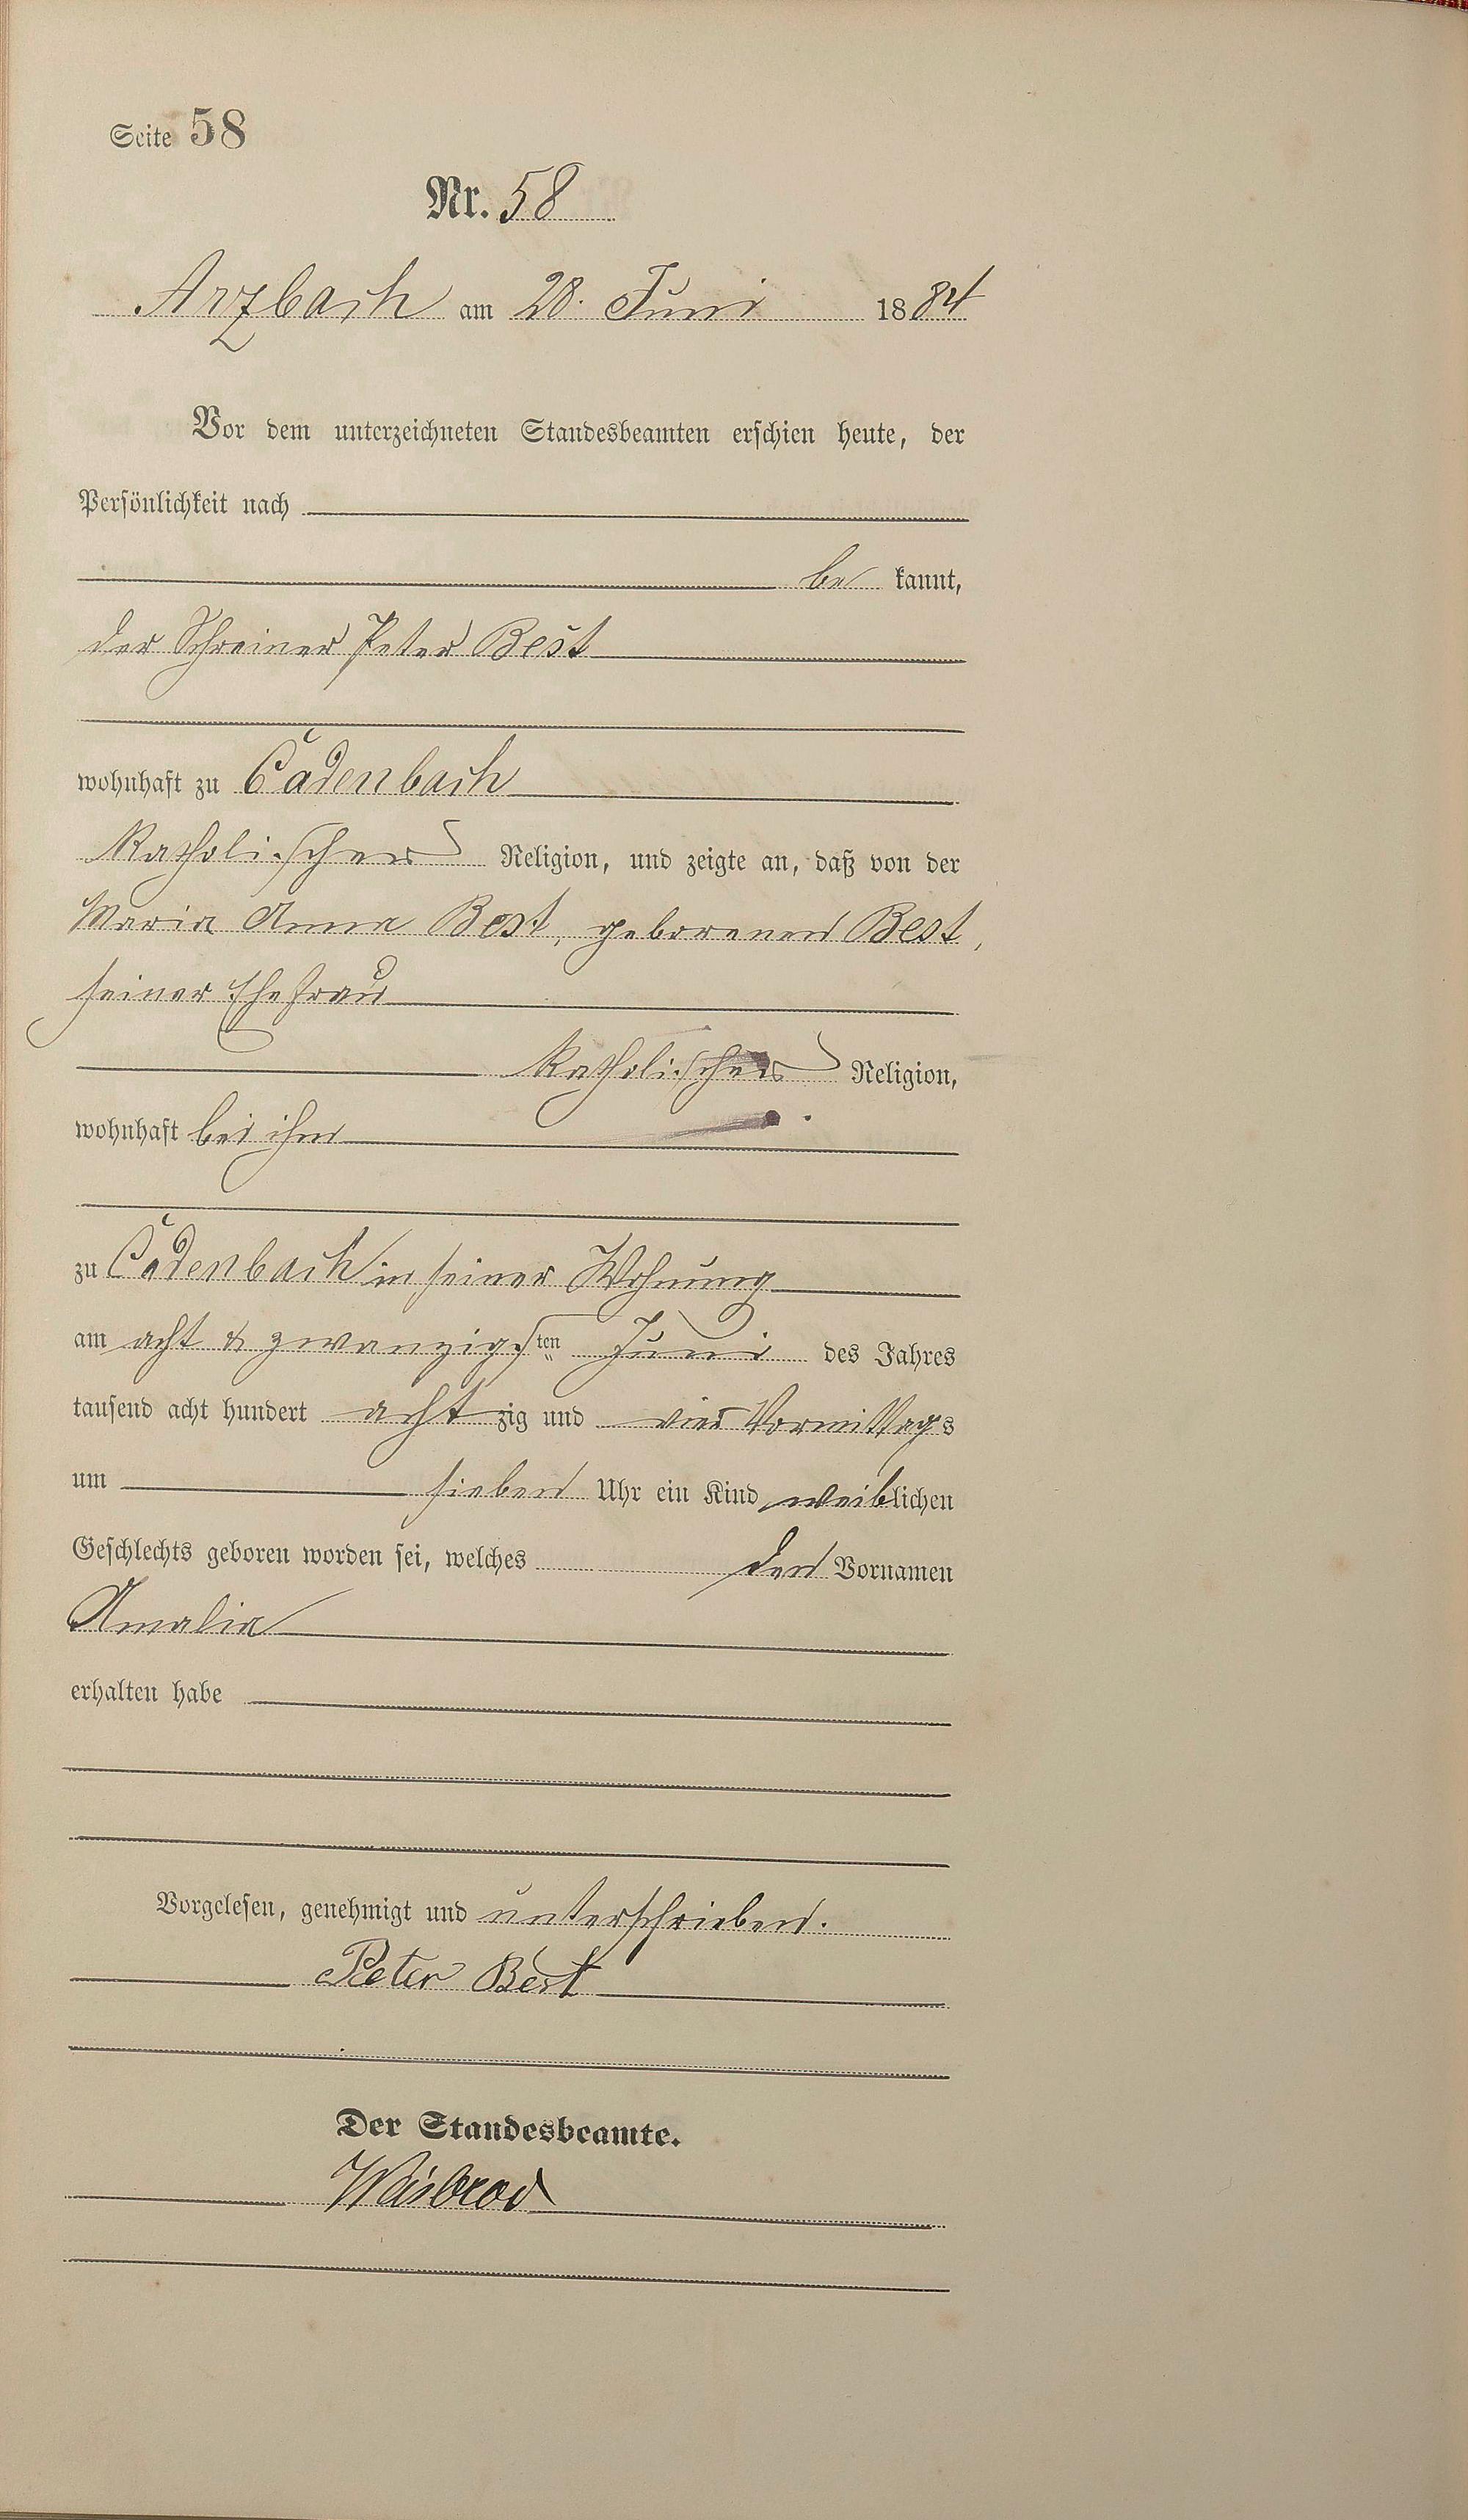 Seite 58
Nr. 58
Arzbach am 28. Juni 1884
Vor dem unterzeichneten Standesbeamten erschien heute, der
Persönlichkeit nach
be kannt,
der Schreiner Peter Best
wohnhaft zu Cadenbach
Katholischer Religion, und zeigte an, daß von der
Maria Anna Best, geborenen Best,
seiner Ehefrau
Katholischer Religion,
wohnhaft bei ihm
zu Cadenbach in seiner Wohnung
am acht & zwanzigsten Juni des Jahres
tausend acht hundert acht zig und vier Vormittags
um sieben Uhr ein Kind weiblichen
Geschlechts geboren worden sei, welches den Vornamen
Amalia
erhalten habe
Vorgelesen, genehmigt und unterschrieben.
Peter Best
Der Standesbeamte.